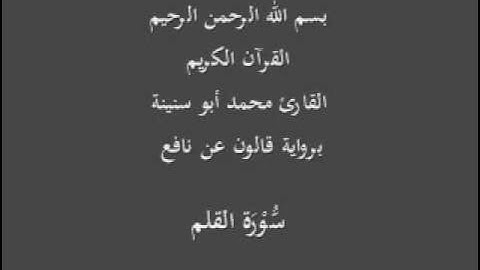 بسم الله الرحمن الرحيم
القرآن الكريم
القارئ محمد أبو سنينة
برواية قالون عن نافع
سُّوْرَة القلم